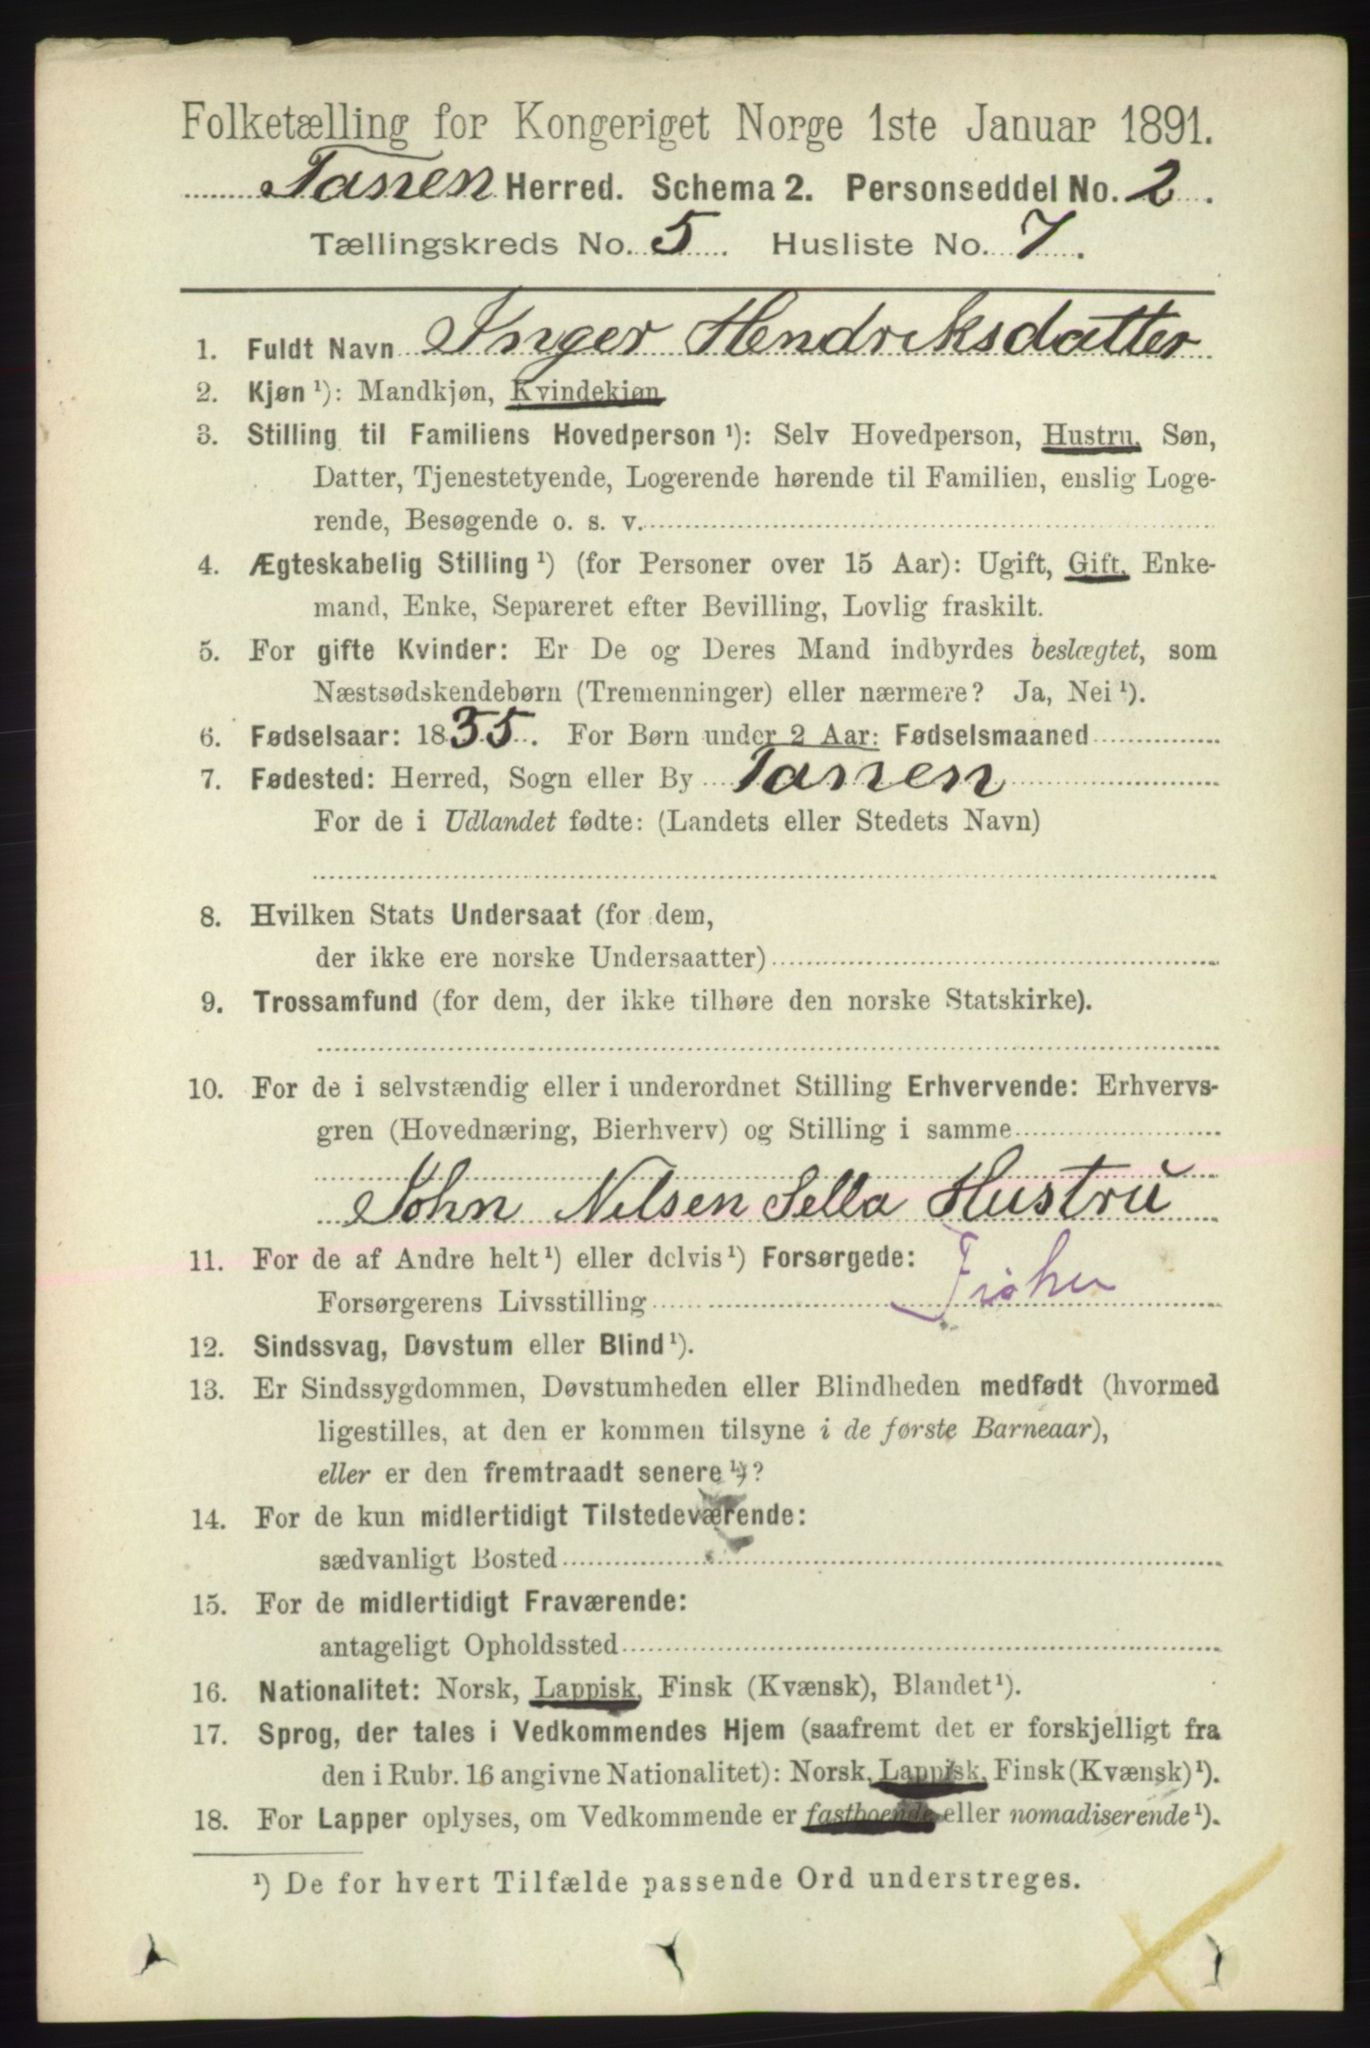 Folketælling for Kongeriget Norge 1ste Januar 1891.
Tanen Herred. Schema 2. Personseddel No. 2.
Tællingskreds No. 5. Husliste No. 7.
1. Fuldt Navn Inger Hendriksdatter
2. Kjøn ¹): Mandkjøn, Kvindekjøn
3. Stilling til Familiens Hovedperson ¹): Selv Hovedperson, Hustru, Søn,
Datter, Tjenestetyende, Logerende hørende til Familien, enslig Loge-
rende, Besøgende o. s. v.
4. Ægteskabelig Stilling ¹) (for Personer over 15 Aar): Ugift, Gift, Enke-
mand, Enke, Separeret efter Bevilling, Lovlig fraskilt.
5. For gifte Kvinder: Er De og Deres Mand indbyrdes beslægtet, som
Næstsødskendebørn (Tremenninger) eller nærmere? Ja, Nei ¹).
6. Fødselsaar: 1835. For Børn under 2 Aar: Fødselsmaaned
7. Fødested: Herred, Sogn eller By Tanen
For de i Udlandet fødte: (Landets eller Stedets Navn)
8. Hvilken Stats Undersaat (for dem,
der ikke ere norske Undersaatter)
9. Trossamfund (for dem, der ikke tilhøre den norske Statskirke).
10. For de i selvstændig eller i underordnet Stilling Erhvervende: Erhvervs-
gren (Hovednæring, Bierhverv) og Stilling i samme
John Nilsen Sella Hustru
11. For de af Andre helt ¹) eller delvis ¹) Forsørgede:
Forsørgerens Livsstilling Fisker
12. Sindssvag, Døvstum eller Blind ¹).
13. Er Sindssygdommen, Døvstumheden eller Blindheden medfødt (hvormed
ligestilles, at den er kommen tilsyne i de første Barneaar),
eller er den fremtraadt senere ¹)?
14. For de kun midlertidigt Tilstedeværende:
sædvanligt Bosted
15. For de midlertidigt Fraværende:
antageligt Opholdssted
16. Nationalitet: Norsk, Lappisk, Finsk (Kvænsk), Blandet ¹).
17. Sprog, der tales i Vedkommendes Hjem (saafremt det er forskjelligt fra
den i Rubr. 16 angivne Nationalitet): Norsk, Lappisk, Finsk (Kvænsk) ¹).
18. For Lapper oplyses, om Vedkommende er fastboende eller nomadiserende ¹).
¹) De for hvert Tilfælde passende Ord understreges.